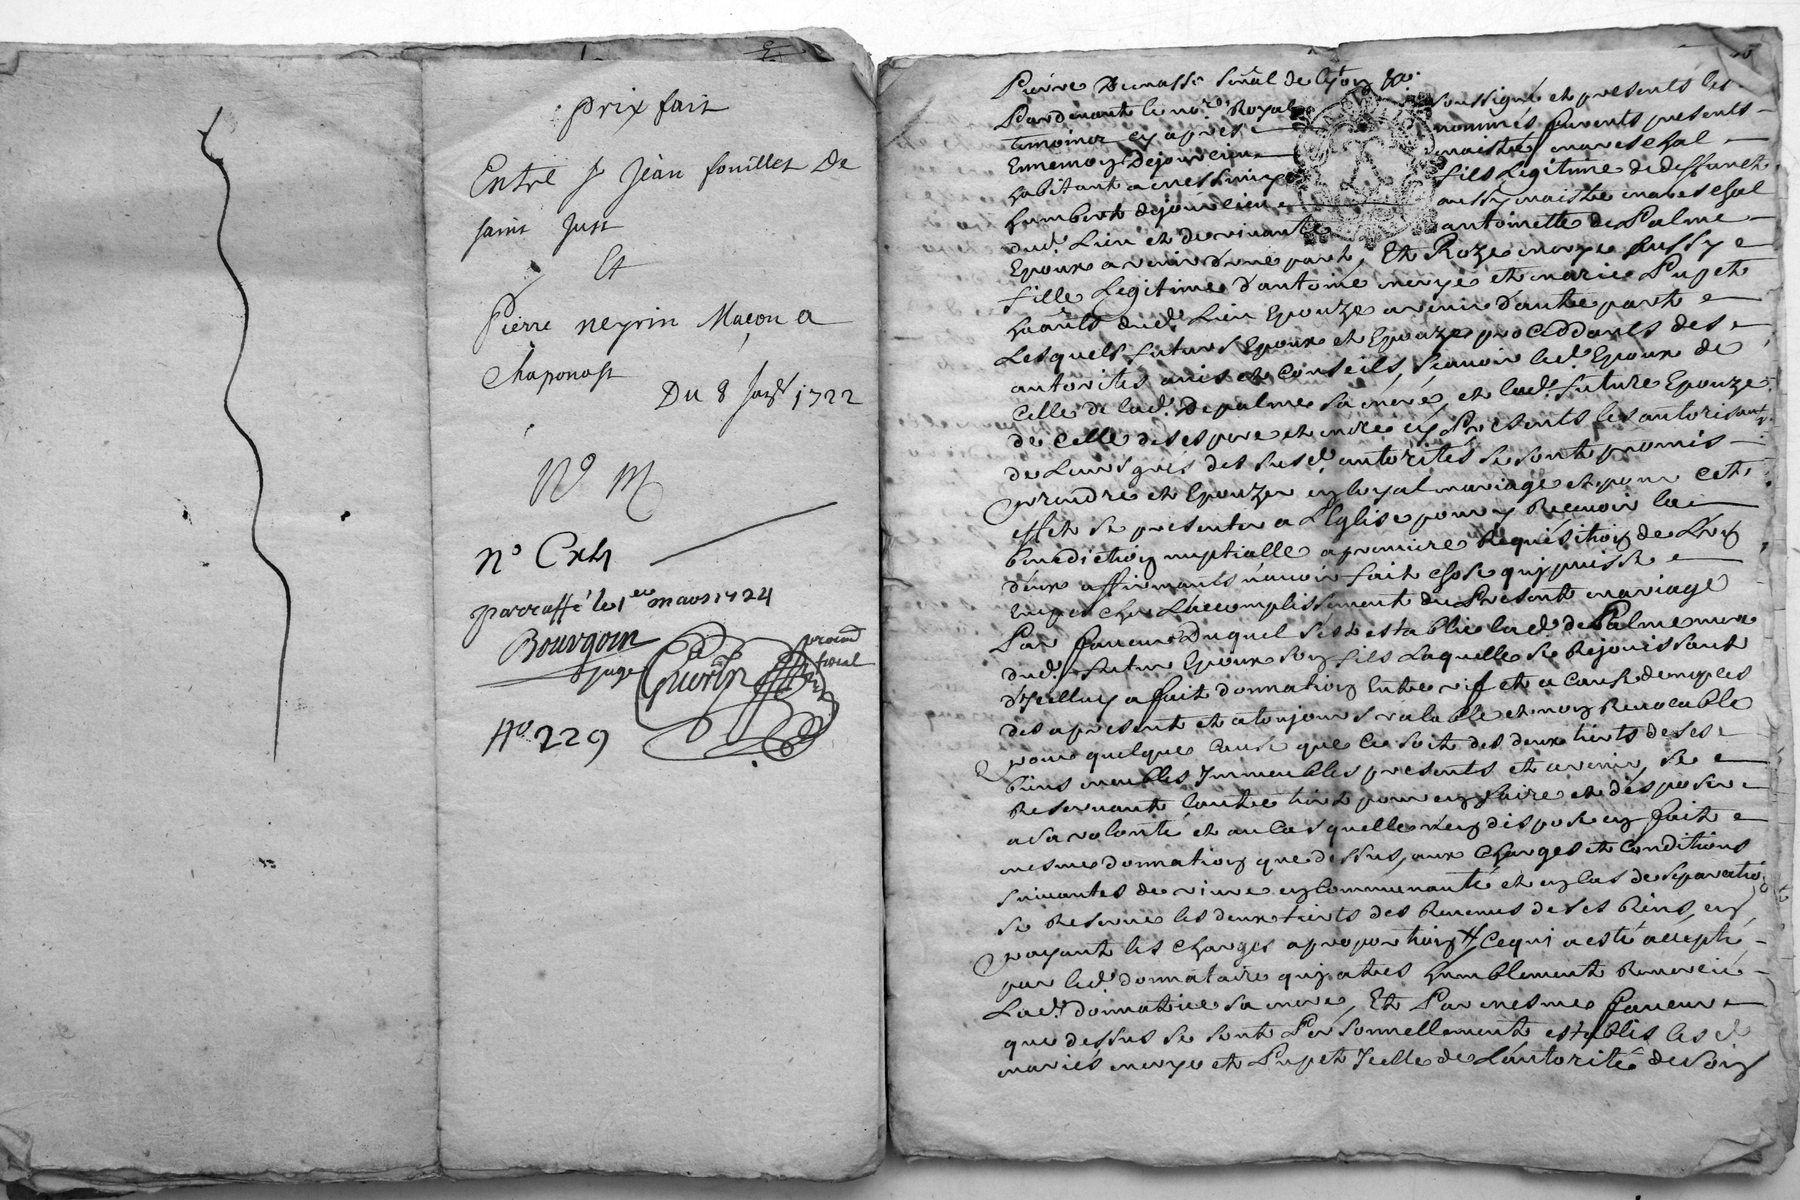 prix fait
Entre sr Jean fouillet De
saint Just
Et
Pierre neyrin Maçon a
chaponost
Du 8 Janvr 1722
No M
no Cxh
parraffé le 1er mars 1724
Bourgoin
juge
Guerin
procur
fiscal
No 229
Pierre Dumassé senal de lyon &a.
Pardevant le nore Royal soussigné et presents les
temoins cy apres nommés furent presents
Ennemon Dejourlieu maistre mareschal
habitant a messimy fils Legitime de deffunct
humbert dejourlieu aussy maistre mareschal
dud. Lieu et de vivante antoinette de Palme
Epoux avenir d'une part, Et Roze moyse aussy
fille Legitime d'antoine moyse et marie Pupet
habts dud. Lieu Epouze avenir d'autre part
Lesquels futurs Epoux et Epouze, proceddants des
autorités avis et Conseils, sçavoir led. Epoux de
Celle de lad. Depalme sa mere, et lad. future Epouze
de Celle de ses pere et mere cy Presents les autorisant
de Leurs grés des susd. autorités se sont promis
prendre et Epouzer en loyal mariage et pour cet
effet se presenter a L'Eglise pour y Recevoir la
benediction nuptialle a premiere Requisition de L'un
d'eux affirmants n'avoir fait chose qui puisse
Empescher L'accomplissement du Present mariage
Par faveur Duquel s'est establie lad. de Palme mere
dud. futur Epoux son fils Laquelle se Rejouissant
d'Icelluy a fait donnation Entre vif et a Cause de nopces
des apresent et a toujours valable et non Revocable
pour quelque Cause que ce soit des deux tiers de ses
biens meubles Immeubles presents et avenir, se
Reservant L'autre tiers pour en faire et disposer
a sa volonté et au Cas quelle n'en dispose en fait
mesme donnation que dessus, aux Charges et Conditions
suivantes de vivre en Communauté et en Cas de separation
se Reserve les deux tiers des Revenus de ses Biens, en
payant les charges a proportion Ce qui a esté accepté
par led. donnataire qui a tres humblement Remercié
Lad. donnatrice sa mere, Et Par mesme faveur
que dessus se sont Personnellement establis les d.
mariés moyse et Pupet Icelle de L'autorité de son